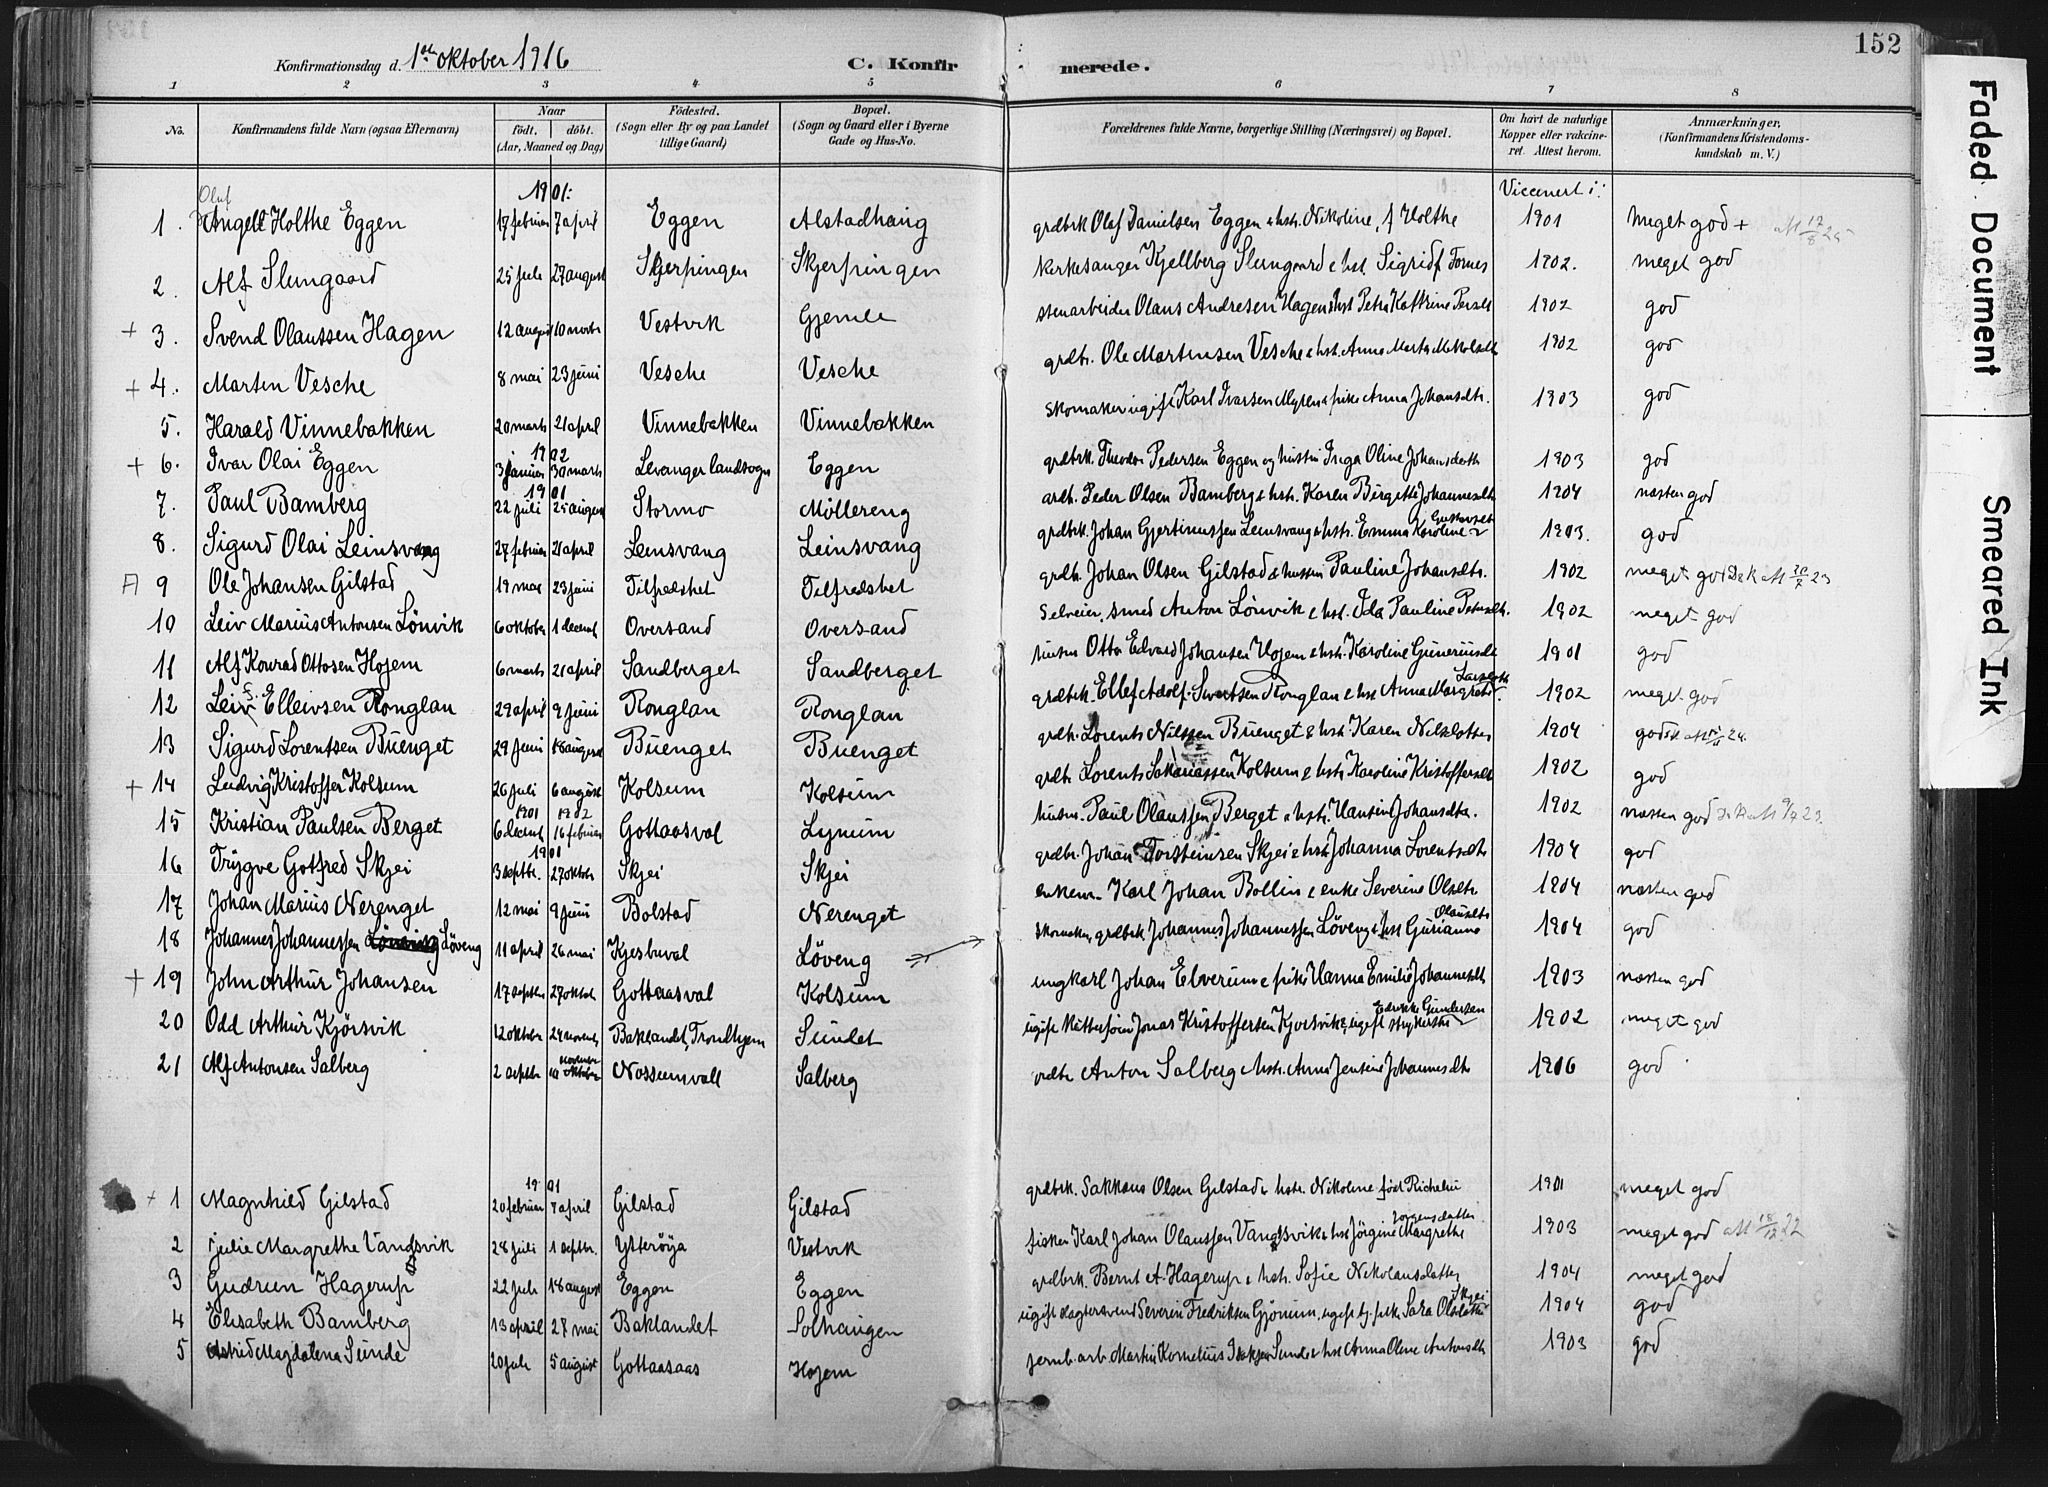 152
Konfirmationsdag d. 1ste oktober 1916
C. Konfirmerede.
1 2 3 4 5 6 7 8
No. Konfirmandens fulde Navn (ogsaa Efternavn) Naar födt. döbt. (Aar, Maaned og Dag) Födested. (Sogn eller By og paa Landet tillige Gaard) Bopæl. (Sogn og Gaard eller i Byerne Gade og Hus-No. Forældrenes fulde Navne, borgerlige Stilling (Næringsvei) og Bopæl. Om havt de naturlige Kopper eller vakcineret. Attest herom. Anmærkninger, (Konfirmandens Kristendomskundskab m. V.)
Olaf 1901: Viccenert i:
1. Angell Holthe Eggen 17 februar 7 april Eggen Alstadhaug grdbrk Olaf Danielsen Eggen & hstr. Nikoline, f Holthe 1901 Meget god +
2. Alf Slungaard 25 juli 27 august Skjerpingen Skjerpingen Kirkesanger Kjellberg Slungaard & hst. Sigrid f Fornes 1902. meget god
+ 3. Svend Olaussen Hagen 12 august 10 novbr Vestvik Gjemle stenarbeider Olaus Andresen Hagen & hst Petra Kathrine Persdt 1902 god
+ 4. Marten Vesche 8 mai 23 juni Vesche Vesche grdbr. Ole Martinsen Vesche & hst. Anna Marta 1902 god
5. Harald Vinnebakken 20 marts 21 april Vinnebakken Vinnebakken Skomaker ugift Karl Ivarsen Myren & pike Anna Johansdtr. 1903 god
1902
+ 6. Ivar Olai Eggen 3 januar 30 marts Levanger landsogn Eggen grdbrk. Theodor Pedersen Eggen og hustru Inga Oline Johansdatter 1903 god
1901
7. Paul Bamberg 22 juli 25 august Stormo Möllereng ardb. Peder Olsen Bamberg & hstr. Karen Birgitte Johannesdtr 1904 næsten god
8. Sigurd Olai Leinsvang 27 februar 21 april Leinsvang Leinsvang grdbrk. Johan Gjertinussen Leinsvang & hstr. Emma Karoline Gustavsdt 1903. god
9 Ole Johansen Gilstad 19 mai 23 juni Tilfredshet Tilfredshet grdb. Johan Olsen Gilstad & hustru Pauline Johansdtr. 1902 meget god
10 Leiv Marius Antonsen Lönvik 6 oktober 1 decemb Oversand Oversand Selveier, smed Anton Lönvik & hst. Ida Pauline Petersdtr. 1902 meget god
11 Alf Konrad Ottosen Hojem 6 marts 21 april Sandberget Sandberget husm Otto Edvard Johansen Hojem & hstr. Karoline Guneriusdt 1901 god
12 Leiv Elleivsen Ronglan 29 april 9 juni Ronglan Ronglan grdbrk. Ellef Adolf Ronglan & hst Anna Margrete Larsdatter 1902 meget god
13 Sigurd Lorentsen Buenget 29 juni 18 august Buenget Buenget grdb. Lorents Nilssen Buenget & hst. Karen Nilsdatter 1904 god
+ 14 Ludvig Kristoffer Kolsum 26 juli 6 august Kolsum Kolsum grdb. Lorents Sakariassen Kolsum & hstr Karoline Kristoffersdt 1902 god
1901 1902
15 Kristian Paulsen Berget 6 decemb 16 februar Gottaasval Lynum husm. Paul Olaussen Berget & hstr. Hansine Johansdtr. 1902 næsten god
1901
16 Trygve Gotfred Skjei 3 septbr. 27 oktobr Skjei Skjei grdbr. Johan Torsteinsen Skjei & hst Johanna Lorentsdtr 1904 god
17 Johan Marius Nerenget 12 mai 9 juni Bolstad Nerenget enkem. Karl Johan Bollin & enke Severine Olsdtr. 1904 næsten god
18 Johannes Johannessen Löveng 11 april 26 mai Kjesbuval Löveng skomaker, grdbrk Johannes Johannessen Löveng & hst Gurianna Olausdtr 1904 god
+ 19 John Arthur Johansen 17 septbr 27 oktob Gottaasval Kolsum ungkarl Johan Elverum & pike Hanna Emilie Johannesdt 1903 næsten god
20 Odd Arthur Kjörsvik 12 oktober 24 novemb Baklandet, Trondhjem Sundet ugift Jonas Kristoffersen Kjorsvik, ugift strykerske Gundersen 1902 meget god
21 Alf Antonsen Salberg 2 septbr Nossumvall Salberg grdbr Anton Salberg & hstr. Anna Jensine Johannesdtr 1916 god
1901
+ 1 Magnhild Gilstad 20 februar 7 april Gilstad Gilstad grdbrk. Sakkæus Olsen Gilstad & hstr. Nikoline född Richelui 1901 meget god
2 Julie Margrethe Vangsvik 28 juli 1 septbr. Ytteröya Vestvik fisker Karl Johan Olaussen Vangsvik & hst Jörgine Margrethe Jorgensdatter 1903 meget god
3 Gudrun Hagerup 22 juli 18 august Eggen Eggen grdbrk. Bernt A. Hagerup & hstr. Sofie Nikolausdatter 1904 meget god
4 Elisabeth Bamberg 13 april 27 mai Baklandet Solhaugen ugift slagtersvend Severin Fredriksen Gjönum, ugift tj. pike Sara Olsdatter Skjei 1904 god
5 Astrid Magdalena Sunde 20 juli 5 august Gottaasaas Hojem jernb. arb. Martin Kornelius Isaksen Sunde & hst Anna Oline Antonsdt 1903 god
Faded Document
Smeared Ink